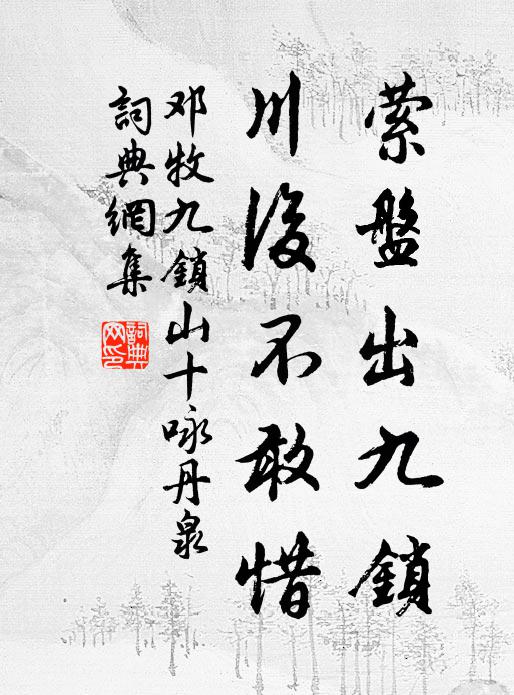 萦盤出九鎖
川後不敢惜
邓牧九鎖山十咏丹泉
詞典網集
詞典网印